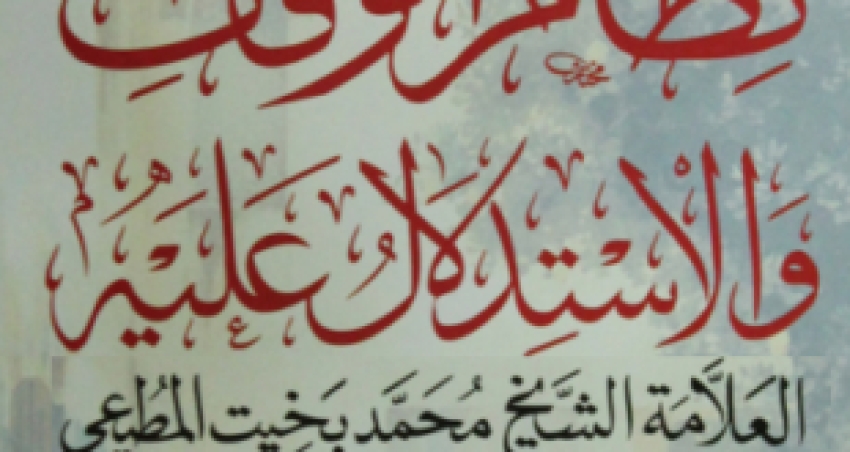 نظام الوقف
وَالاسْتِدْلَالُ عَلَيْهِ
العَلَّامَة الشَّيْخ مُحَمَّد بَخِيت المُطِيعِي